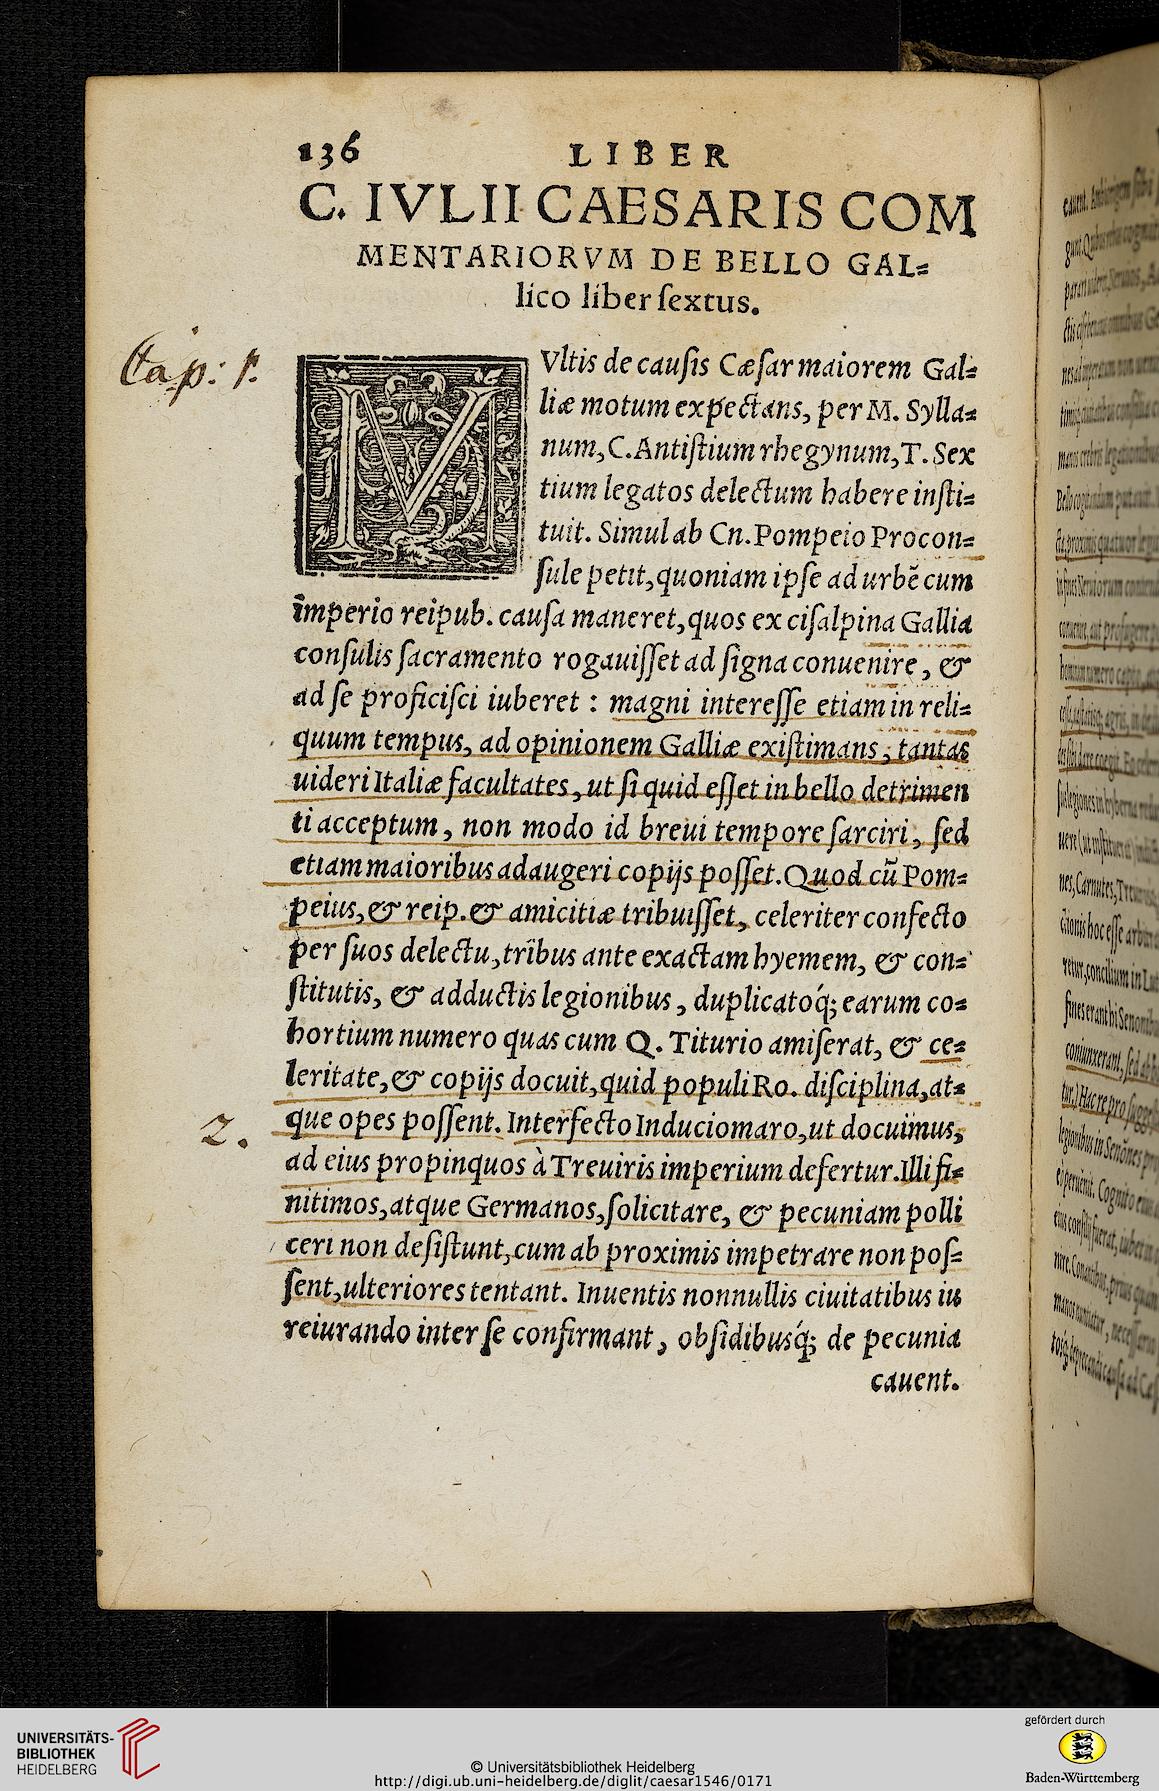 136 LIBER
C. IVLII CAESARIS COM
MENTARIORVM DE BELLO GAL=
lico liber ſextus.
Cap: 1.
MVltis de cauſis Cæſar maiorem Gal=
liæ motum expectans, per M. Sylla=
num, C. Antiſtium rhegynum, T. Sex
tium legatos delectum habere inſti=
tuit. Simul ab Cn. Pompeio Procon=
ſule petit, quoniam ipſe ad urbē cum
imperio reipub. cauſa maneret, quos ex ciſalpina Gallia
conſulis ſacramento rogauiſſet ad ſigna conuenire, &
ad ſe proficiſci iuberet : magni intereſſe etiam in reli=
quum tempus, ad opinionem Galliæ exiſtimans, tantas
uideri Italiæ facultates, ut ſi quid eſſet in bello detrimen
ti acceptum, non modo id breui tempore ſarciri, ſed
etiam maioribus adaugeri copijs poſſet. Quod cū Pom=
peius, & reip. & amicitiæ tribuiſſet, celeriter confecto
per ſuos delectu, tribus ante exactam hyemem, & con=
ſtitutis, & adductis legionibus, duplicatóq; earum co=
hortium numero quas cum Q. Titurio amiſerat, & ce=
leritate, & copijs docuit, quid populi Ro. diſciplina, at=
que opes poſſent. Interfecto Induciomaro, ut docuimus,
2.
ad eius propinquos à Treuiris imperium defertur. Illi fi=
nitimos, atque Germanos, ſolicitare, & pecuniam polli
ceri non deſiſtunt, cum ab proximis impetrare non poſ=
ſent, ulteriores tentant. Inuentis nonnullis ciuitatibus iu
reiurando inter ſe confirmant, obſidibusq́; de pecunia
cauent.
UNIVERSITÄTS-
BIBLIOTHEK
HEIDELBERG
© Universitätsbibliothek Heidelberg
http://digi.ub.uni-heidelberg.de/diglit/caesar1546/0171
gefördert durch
Baden-Württemberg